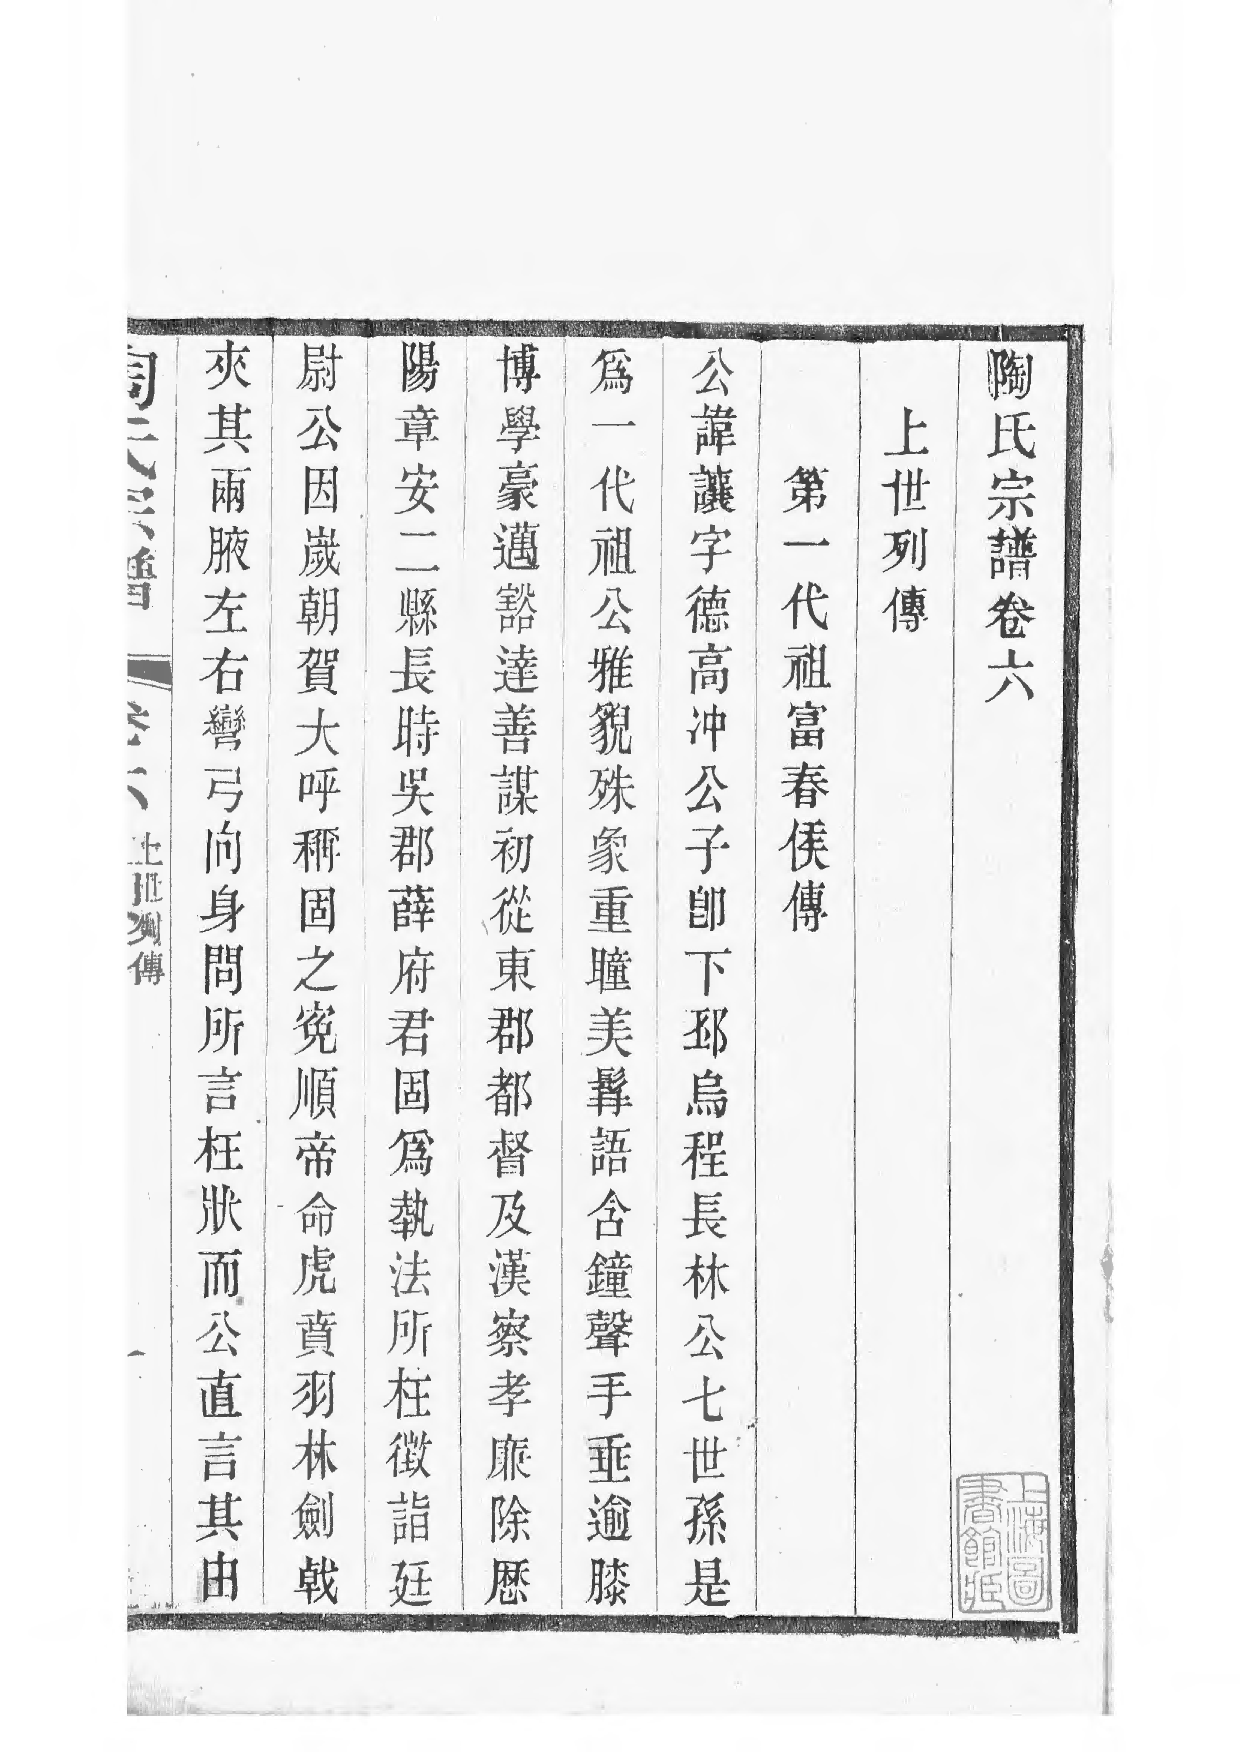 陶氏宗譜卷六
上世列傳
第一代祖富春侯傳
公諱讓字德高冲公子卽下邳烏程長林公七世孫是
爲一代祖公雅貌殊象重瞳美髯語含鐘聲手垂逾膝
博學豪邁豁達善謀初從東郡都督及漢察孝廉除歷
陽章安二縣長時吳郡薛府君固爲執法所枉徵詣廷
尉公因歲朝賀大呼稱固之寃順帝命虎賁羽林劍戟
夾其兩腋左右彎弓向身問所言枉狀而公直言其由
陶氏宗譜
卷六
上世列傳
一
上海圖
書館藏